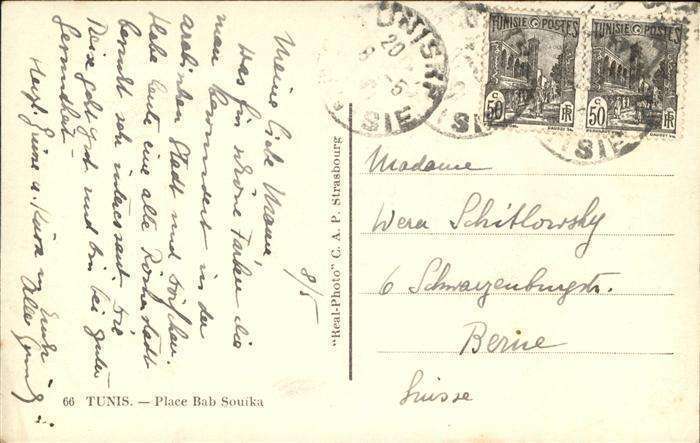 8/5
Meine liebe Mama
Was für schöne Farben die
man bewundert in der
arabischen Stadt und Dörfchen.
Habe heute eine alte Römerstadt
besucht sehr interessant. Die
Reise geht gut und bin bei guter
Gesundheit
Herzl. Grüsse u. Küsse
66 TUNIS. — Place Bab Souika
"Real-Photo" C. A. P. Strasbourg
TUNIS RP
20
8 -5
TUNISIE
TUNISIE POSTES
50 C
RF
TUNISIE POSTES
50 C
RF
Madame
Wera Schitlowsky
6 Schwarzenburgstr.
Berne
Suisse